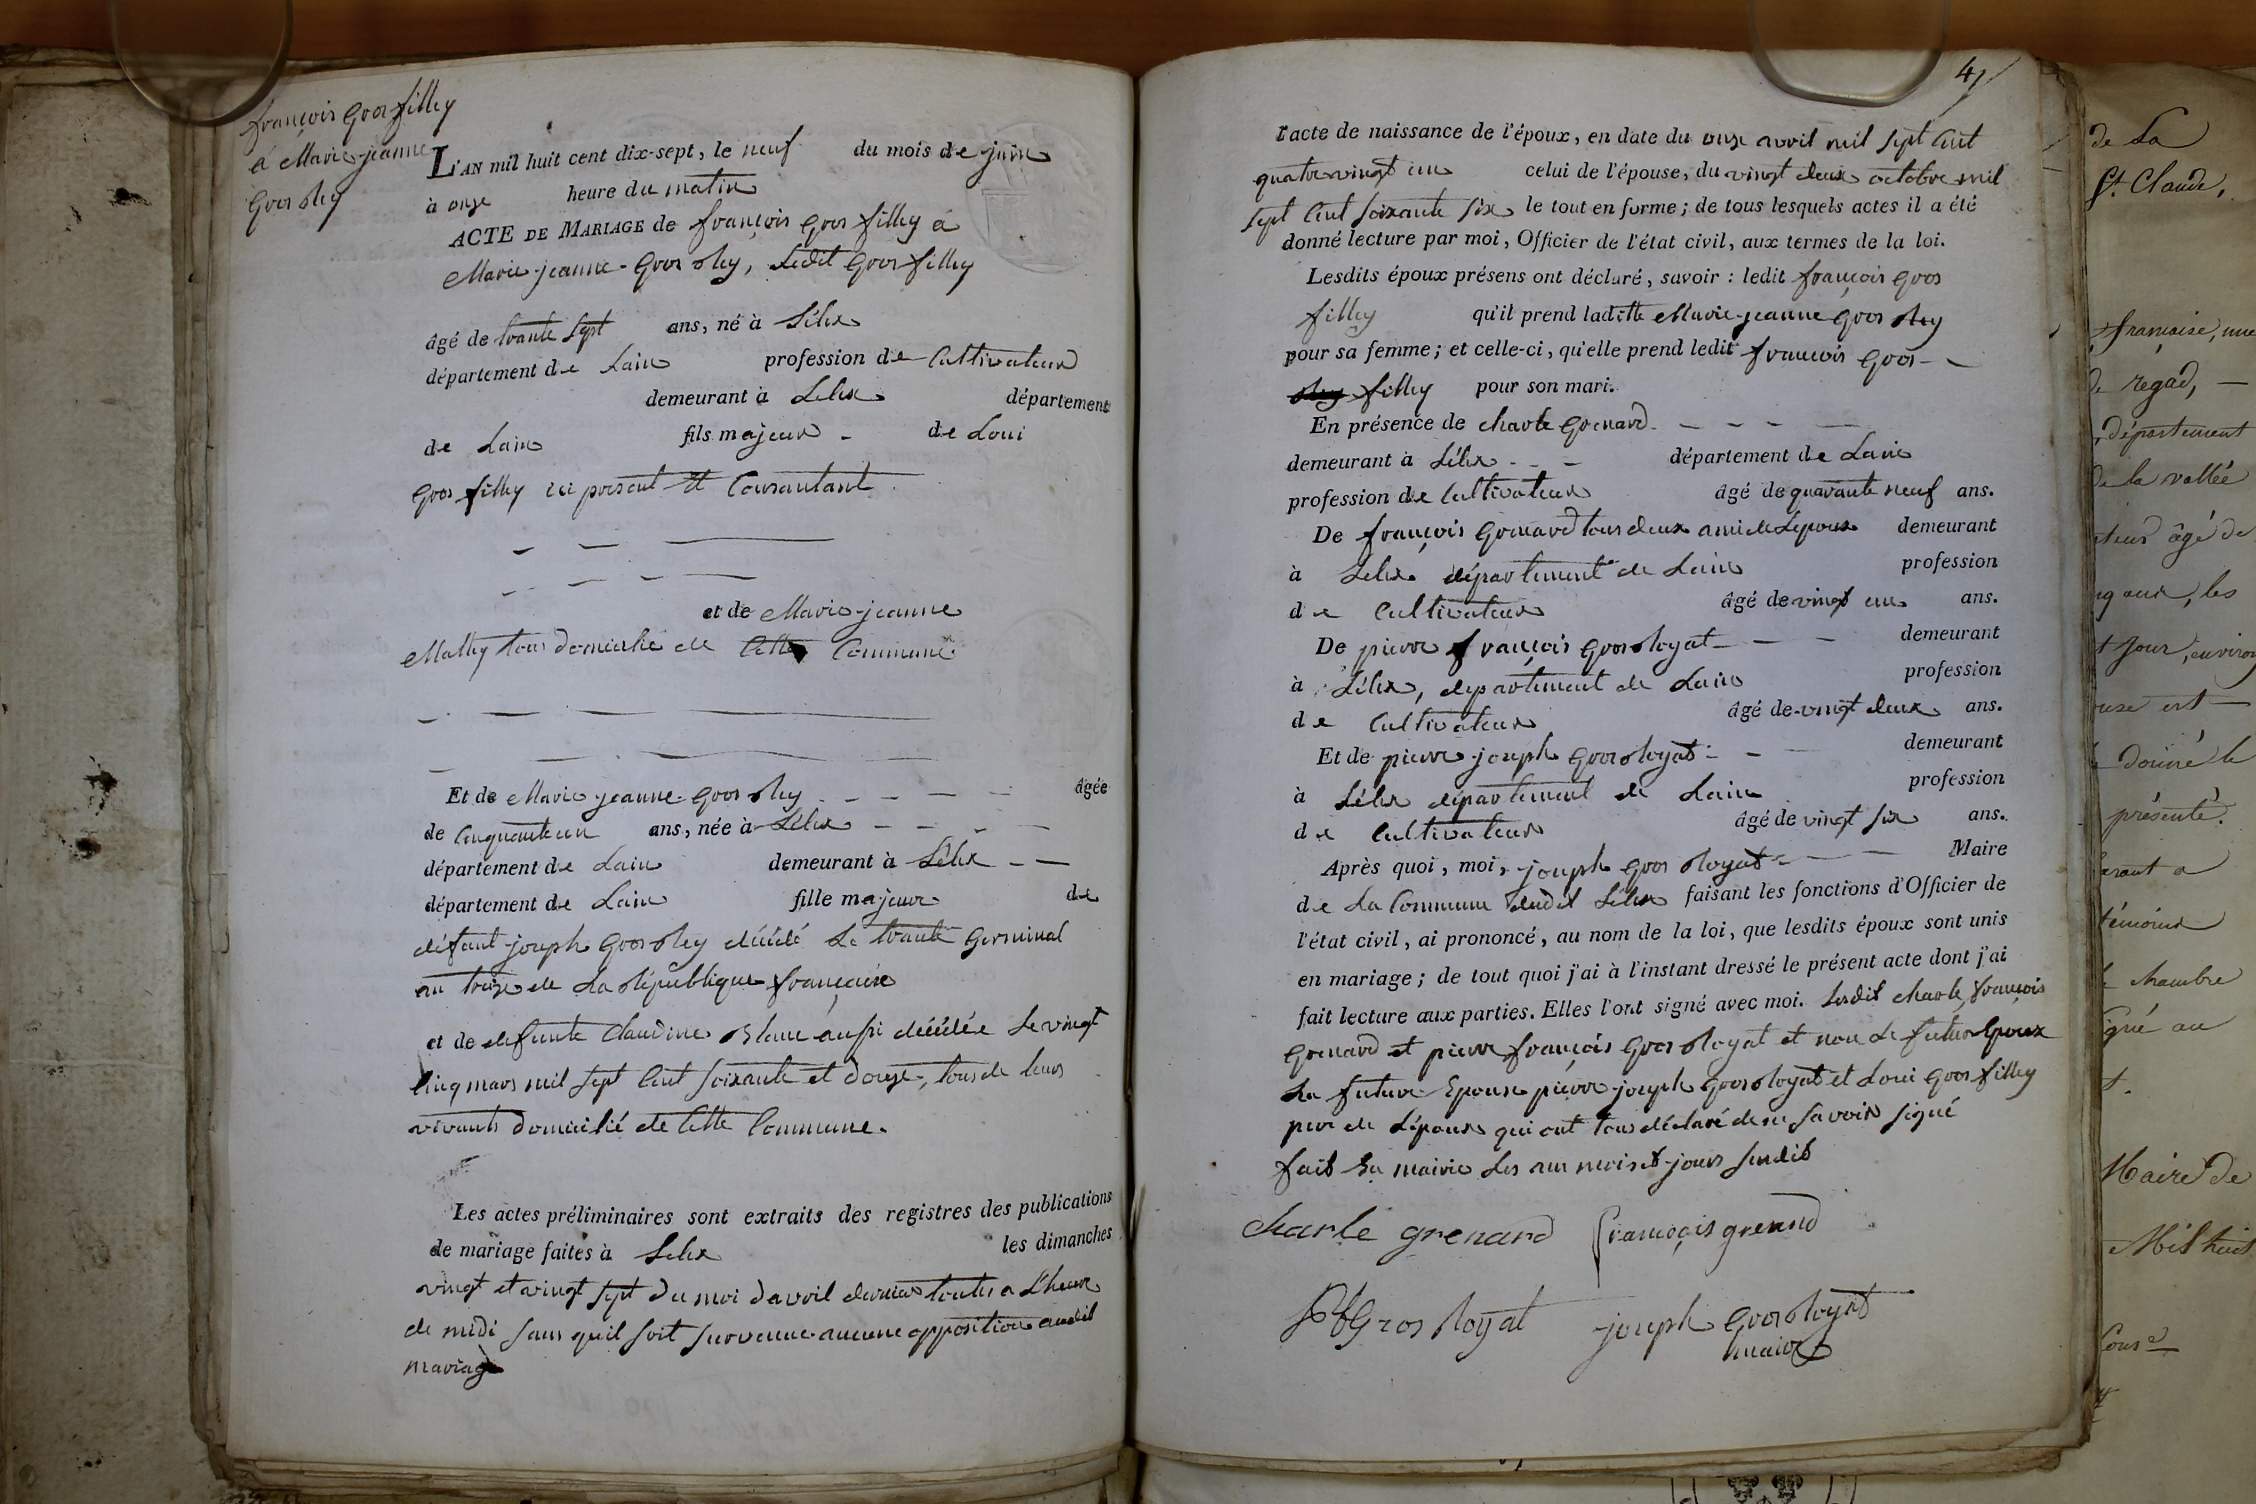 françois Gros filley
à Marie-jeanne
Gros rey
L'AN mil huit cent dix-sept, le neuf du mois de juin
à onze heure du matin
ACTE DE MARIAGE de françois Gros filley a
Marie-jeanne-Gros rey, Ledit Gros filley
âgé de trante sept ans, né à Lélex
département de Lain profession de Cultivateur
demeurant à Lélex département
de Lain fils majeur - de Loui
Gros filley ici present et Consantant
et de Marie-jeanne
Mathey tous domicilié de Cette Commune
Et de Marie jeanne Gros rey âgée
de Cinquante un ans, née à Lélex
département de Lain demeurant à Lélex
département de Lain fille majeure de
défunt joseph Gros rey décédé Le trante Germinal
an treize de La république françaixe
et de defunte Claudine Blanc aussi décédée Le vingt
Cinq mars mil sept Cent soixante et douze, tous de leurs
vivants domicilié de Cette Commune.
Les actes préliminaires sont extraits des registres des publications
de mariage faites à Lélex les dimanches
vingt et vingt sept du moi davril dernier toutes a Lheure
de midi sans quil soit survenue aucune opposition audit
mariage
41
l'acte de naissance de l'époux, en date du onze avril mil sept Cent
quatrevingt un celui de l'épouse, du vingt deux octobre mil
sept Cent soixante six le tout en forme ; de tous lesquels actes il a été
donné lecture par moi, Officier de l'état civil, aux termes de la loi.
Lesdits époux présens ont déclaré, savoir : ledit françois Gros
filley qu'il prend laditte Marie-jeanne Gros rey
pour sa femme ; et celle-ci, qu'elle prend ledit françois Gros-
rey filley pour son mari.
En présence de charle Grenard
demeurant à Lélex département de Lain
profession de Cultivateur âgé de quarante neuf ans.
De françois Grenard tous deux ami de Lépoux demeurant
à Lelex département de Lain profession
de Cultivateur âgé de vingt un ans.
De pierre françois Gros royat demeurant
à Lélex, departement de Lain profession
de Cultivateur âgé de vingt deux ans.
Et de pierre joseph Gros royat demeurant
à Lélex département de Lain profession
de Cultivateur âgé de vingt six ans.
Après quoi, moi, joseph Gros royat Maire
de La Commune dudit Lélex faisant les fonctions d'Officier de
l'état civil, ai prononcé, au nom de la loi, que lesdits époux sont unis
en mariage ; de tout quoi j'ai à l'instant dressé le présent acte dont j'ai
fait lecture aux parties. Elles l'ont signé avec moi. Lesdit charle, françois
Grenard et pierre françois Gros royat et non Le futur Epoux
La future Epouse pierre joseph Gros royat et Loui Gros filley
pere de Lépoux qui ont tous déclaré de ne savoir signé
fait En mairie Les an mois et jours susdit
charle grenard françois grenard
pf Gros royat joseph Gros royat
maire
de La
St. Claude,
française, une
de regad,
département
de la vallée
âgé de
les
t jour, environ
est
donné le
présenté.
témoins
chambre
signé au
Maire de
Mil huit